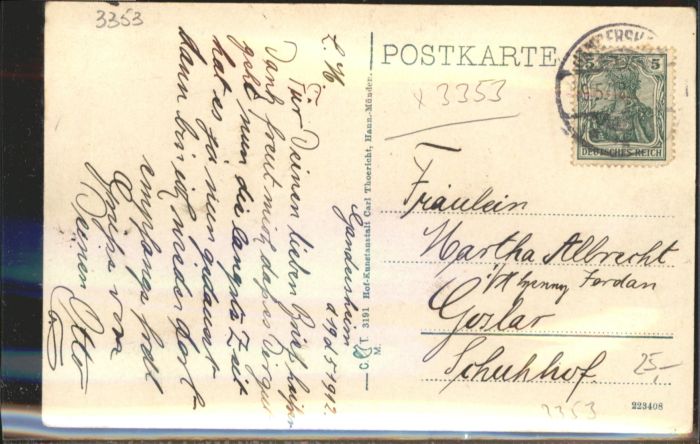 3353
POSTKARTE
x 3353
5 5
DEUTSCHES REICH
Gandersheim
d. 9.5.1912
L. M.
Für Deinen lieben Brief
Dank freut mich, dass es Dir gut
geht, nun die längste Zeit
hat es ja nun gedauert
dann bin ich wieder dort
Gruss von
Deinem Otto
C. T. 3191 Hof-Kunstanstalt Carl Thoericht, Hann.-Münden.
M.
Fräulein
Martha Albrecht
Jordan
Goslar
Schuhhof.
25,-
223408
3353